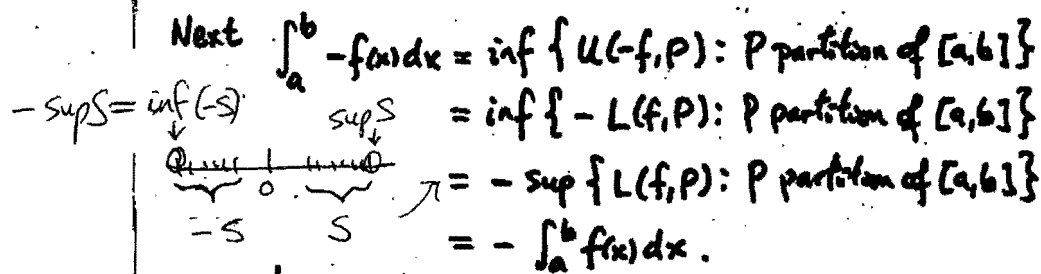 Next ∫_a^b -f(x)dx = inf { U(-f,P) : P partition of [a,b] }
-sup S = inf(-S)
sup S
= inf { - L(f,P) : P partition of [a,b] }
= - sup { L(f,P) : P partition of [a,b] }
0
-S S
= - ∫_a^b f(x) dx .